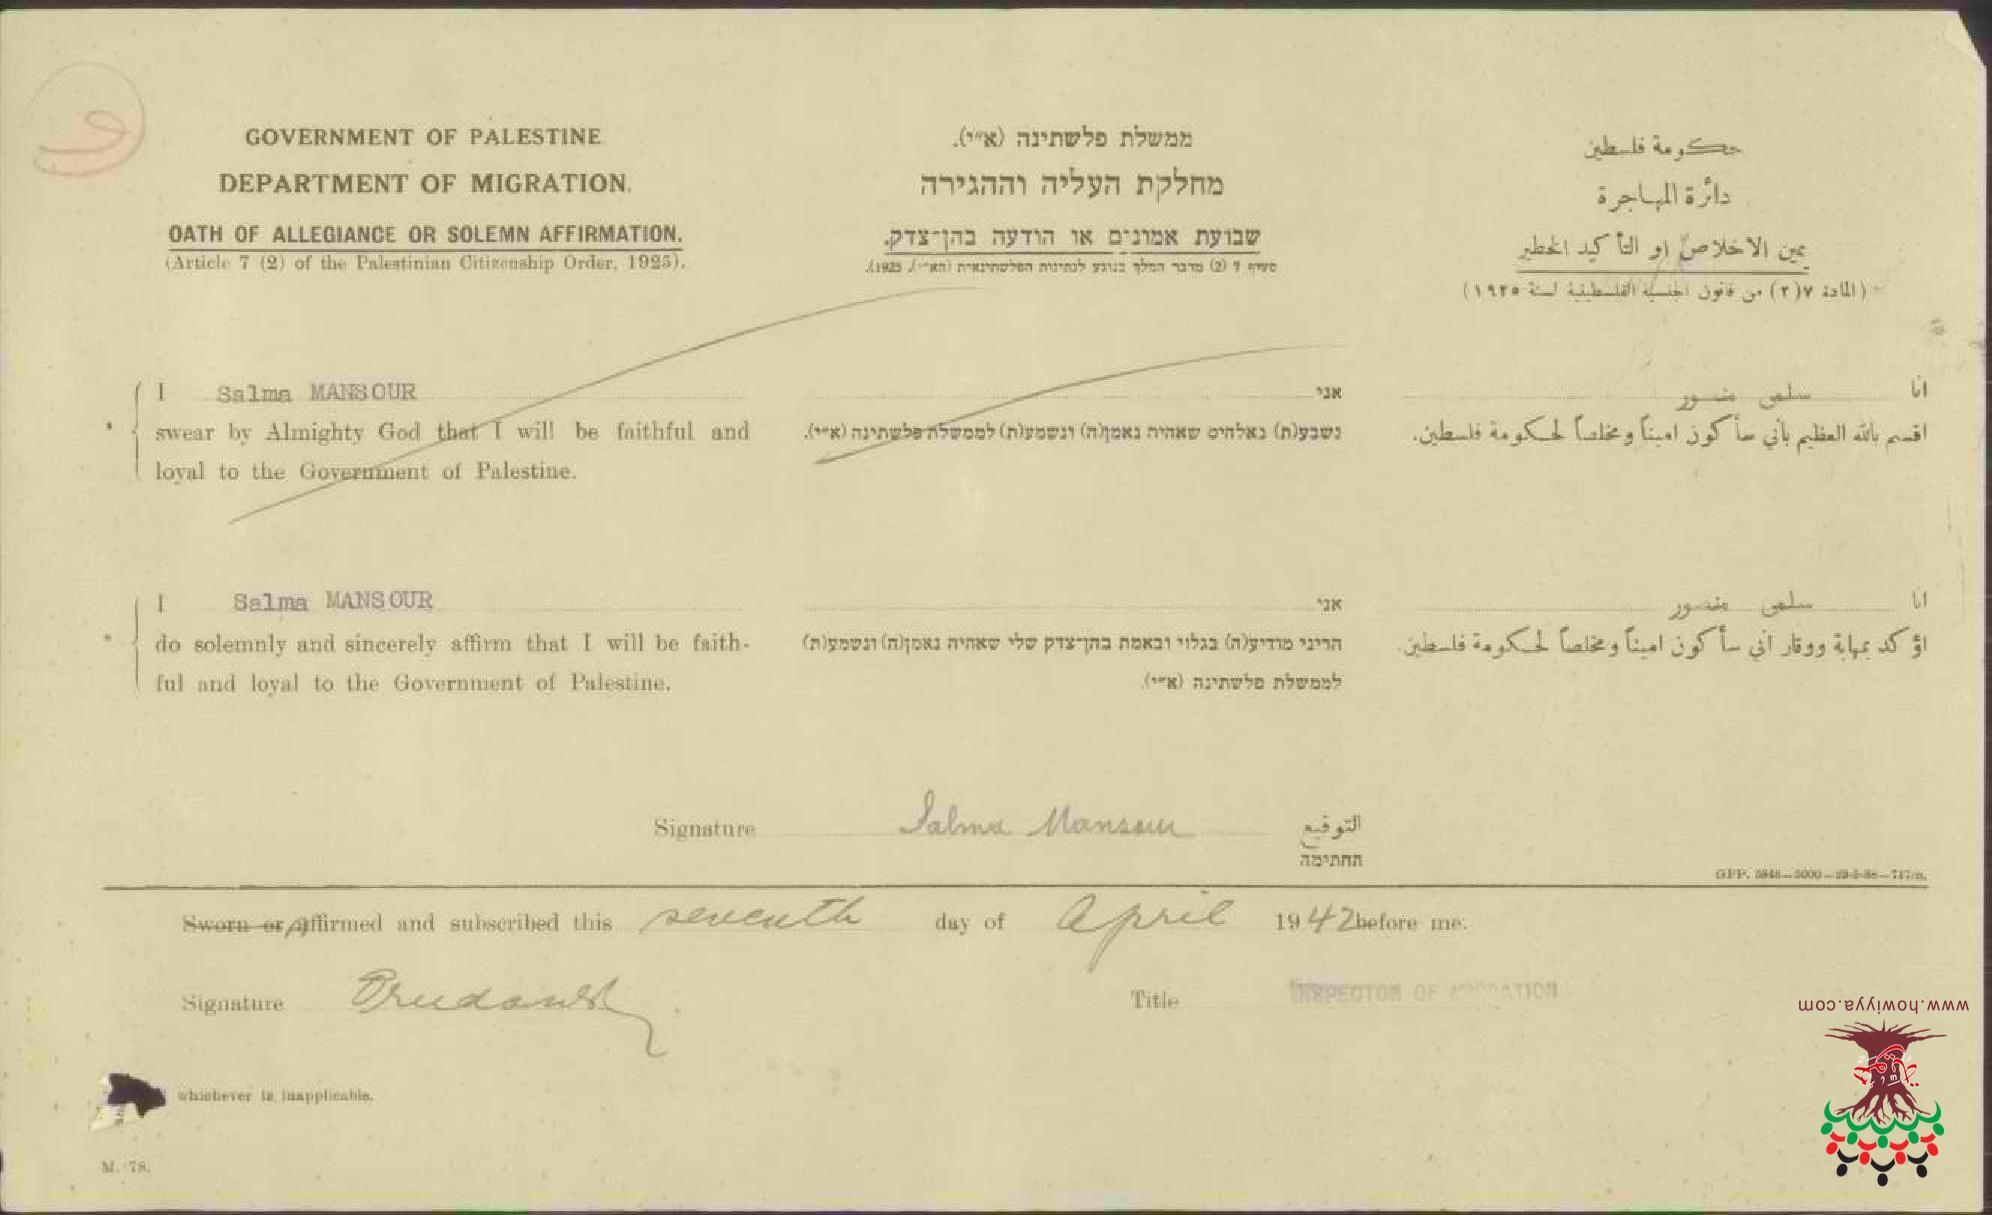 GOVERNMENT OF PALESTINE
DEPARTMENT OF MIGRATION.
OATH OF ALLEGIANCE OR SOLEMN AFFIRMATION.
(Article 7 (2) of the Palestinian Citizenship Order, 1925).
ממשלת פלשתינה (א״י).
מחלקת העליה וההגירה
שבועת אמונים או הודעה בהן־צדק.
סעיף 7 (2) מדבר המלך בנוגע לנתינות הפלשתינאית (הא״י), 1925).
حكومة فلسطين
دائرة المهاجرة
يمين الاخلاص او التأكيد الخطير
(المادة ٧(٢) من قانون الجنسية الفلسطينية لسنة ١٩٢٥)
I Salma MANSOUR
swear by Almighty God that I will be faithful and
loyal to the Government of Palestine.
אני
נשבע(ת) באלהים שאהיה נאמן(ה) ונשמע(ת) לממשלת פלשתינה (א״י).
انا سلمى منصور
اقسم بالله العظيم بأني سأكون اميناً ومخلصاً لحكومة فلسطين.
I Salma MANSOUR
do solemnly and sincerely affirm that I will be faith-
ful and loyal to the Government of Palestine.
אני
הריני מודיע(ה) בגלוי ובאמת בהן־צדק שלי שאהיה נאמן(ה) ונשמע(ת)
לממשלת פלשתינה (א״י).
انا سلمى منصور
اؤكد بمهابة ووقار اني سأكون اميناً ومخلصاً لحكومة فلسطين.
Signature Salma Mansour التوقيع
החתימה
Sworn or affirmed and subscribed this seventh day of April 1942 before me:
Signature
Title INSPECTOR OF MIGRATION
whichever is inapplicable.
M. 78.
www.howiyya.com